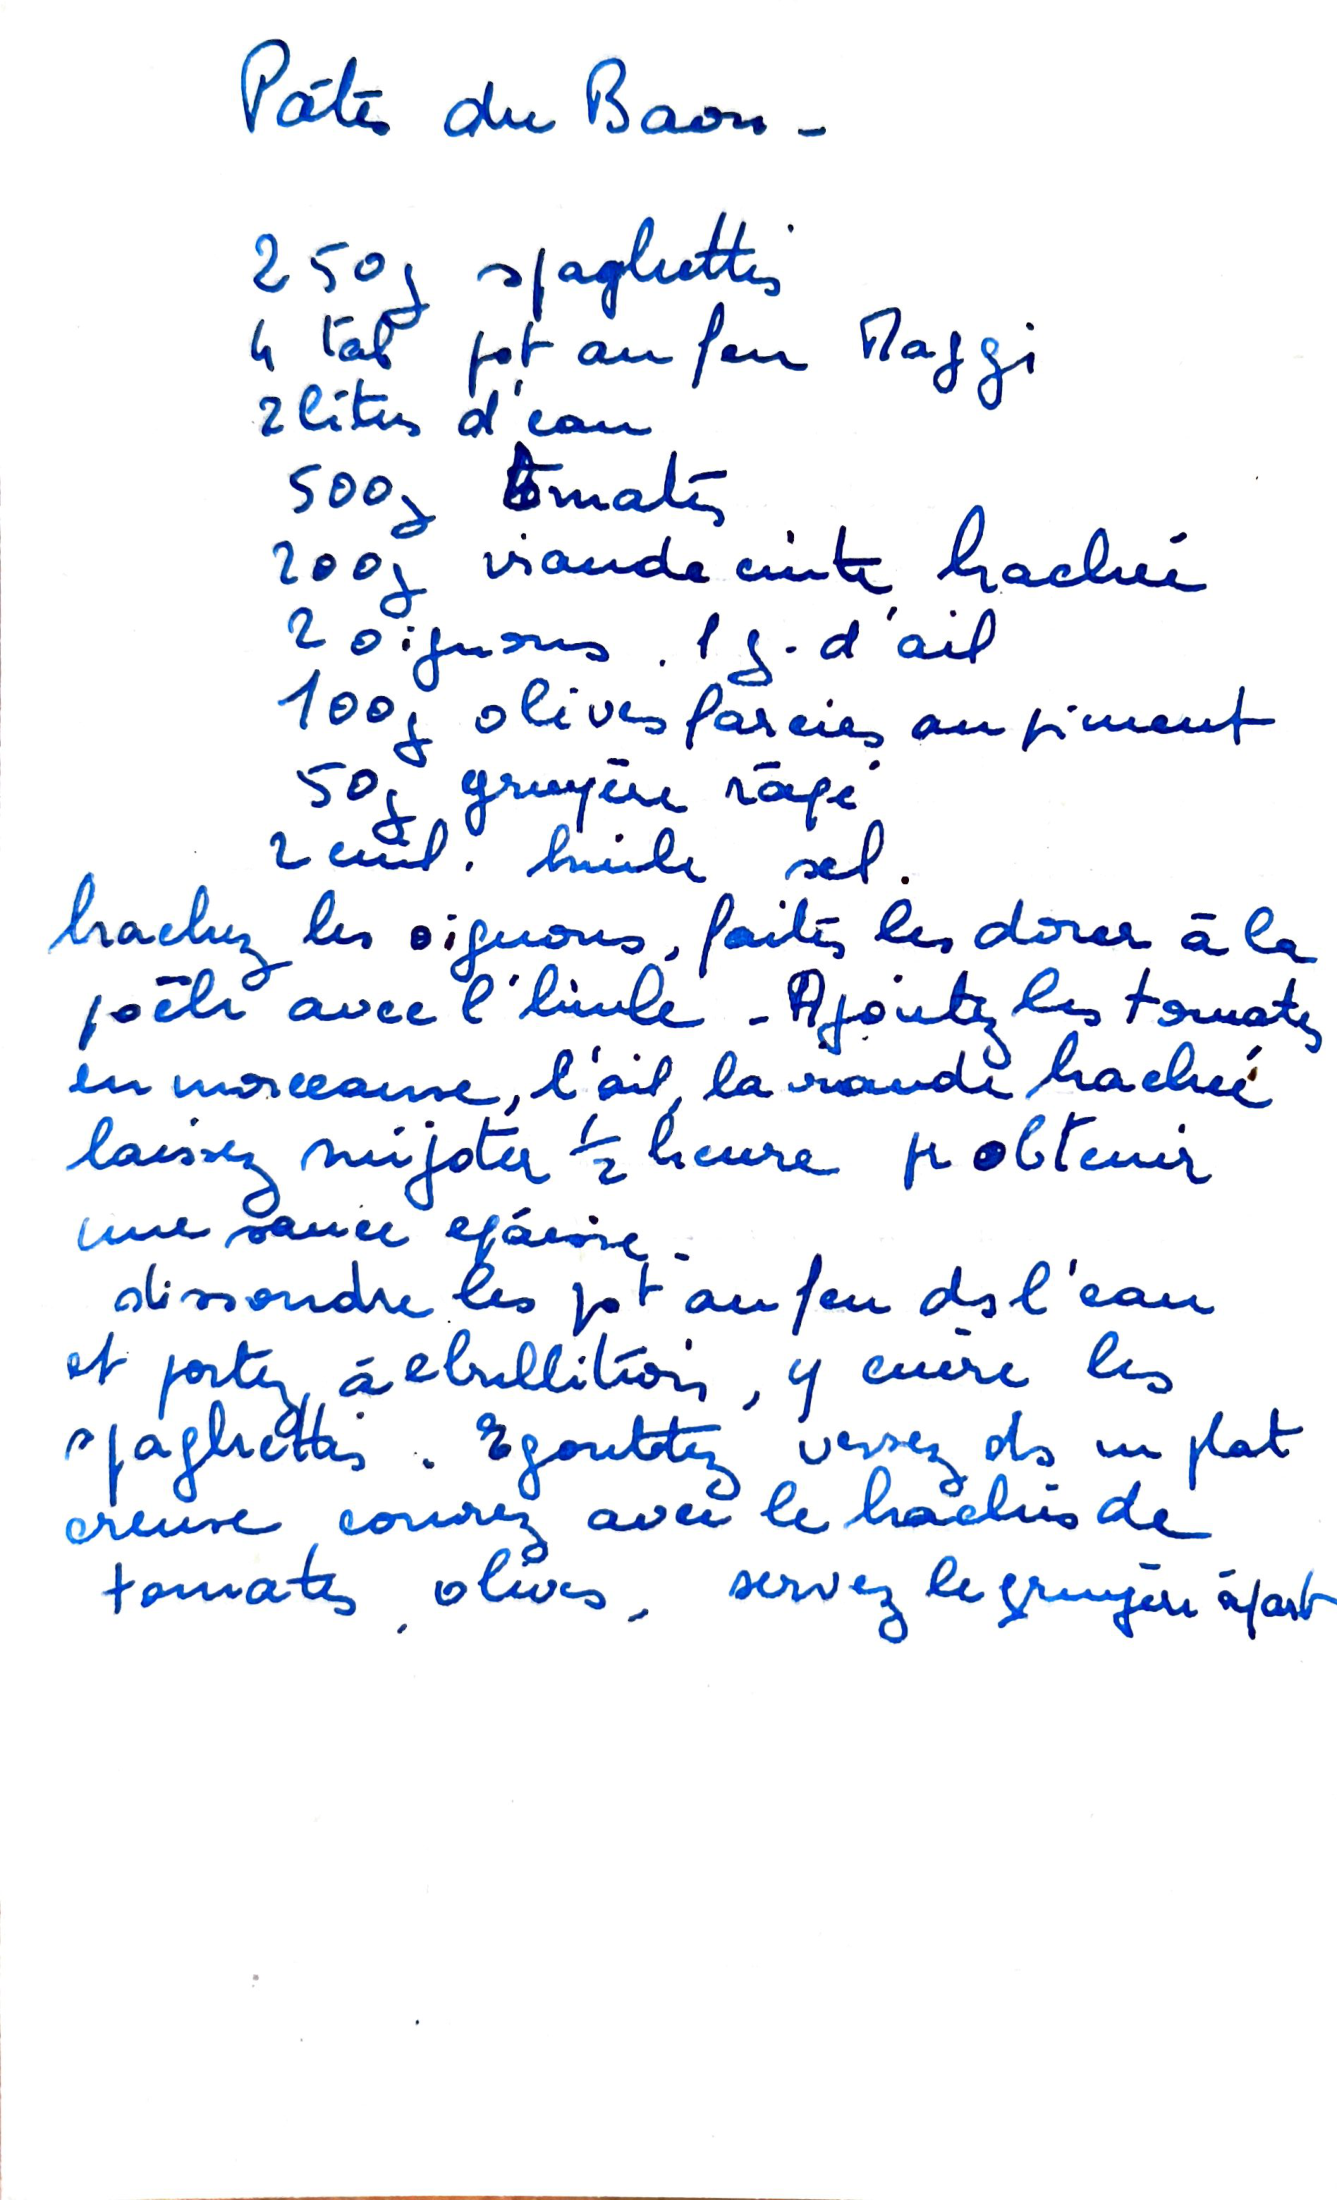 Pâtes du Baou -
250g spaghettis
4 tab pot au feu Maggi
2 litres d'eau
500g tomates
200g viande cuite hachée
2 oignons . 1 g. d'ail
100g olives farcies au piment
50g gruyère râpé
2 cuil. huile sel.
hachez les oignons, faites les dorer à la
poële avec l'huile - Ajoutez les tomates
en morceaux, l'ail, la viande hachée
laissez mijoter 1/2 heure pr obtenir
une sauce epaisse -
dissoudre les pot au feu ds l'eau
et portez à ebullition, y cuire les
spaghettis . Egouttez versez ds un plat
creuse, couvrez avec le hachis de
tomates, olives, servez le gruyère à part